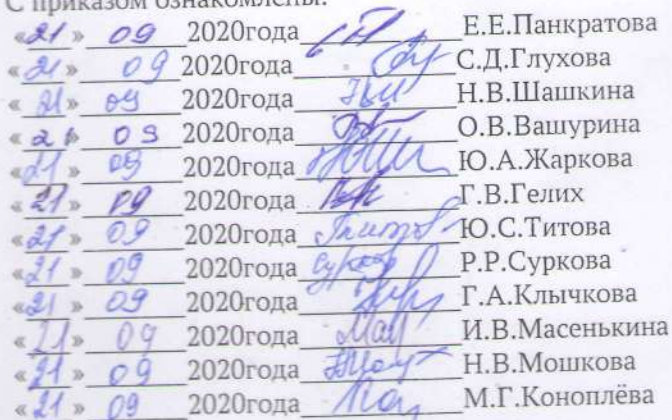 С приказом ознакомлены:
«21» 09 2020года Е.Е.Панкратова
«21» 09 2020года С.Д.Глухова
«21» 09 2020года Н.В.Шашкина
«21» 09 2020года О.В.Вашурина
«21» 09 2020года Ю.А.Жаркова
«21» 09 2020года Г.В.Гелих
«21» 09 2020года Ю.С.Титова
«21» 09 2020года Р.Р.Суркова
«21» 09 2020года Г.А.Клычкова
«21» 09 2020года И.В.Масенькина
«21» 09 2020года Н.В.Мошкова
«21» 09 2020года М.Г.Коноплёва